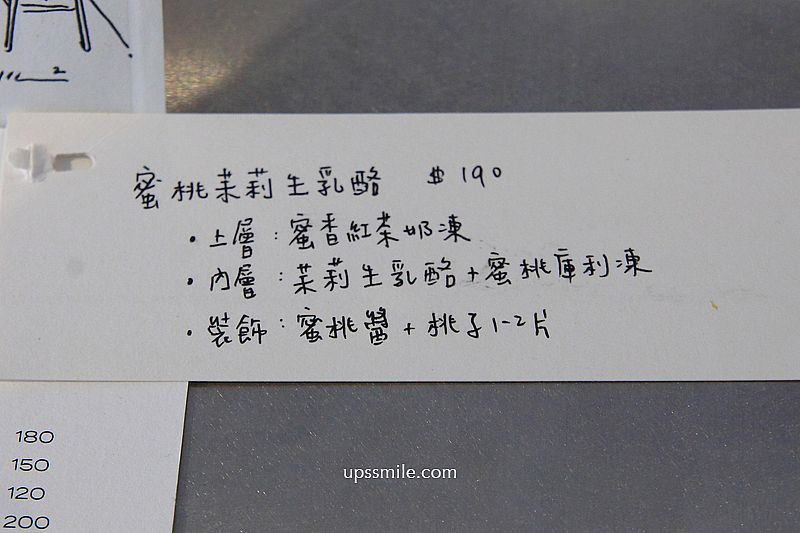 2
蜜桃茉莉生乳酪 $190
・上層：蜜香紅茶奶凍
・內層：茉莉生乳酪+蜜桃庫利凍
・裝飾：蜜桃醬+桃子1-2片
180
150
120
200
upssmile.com